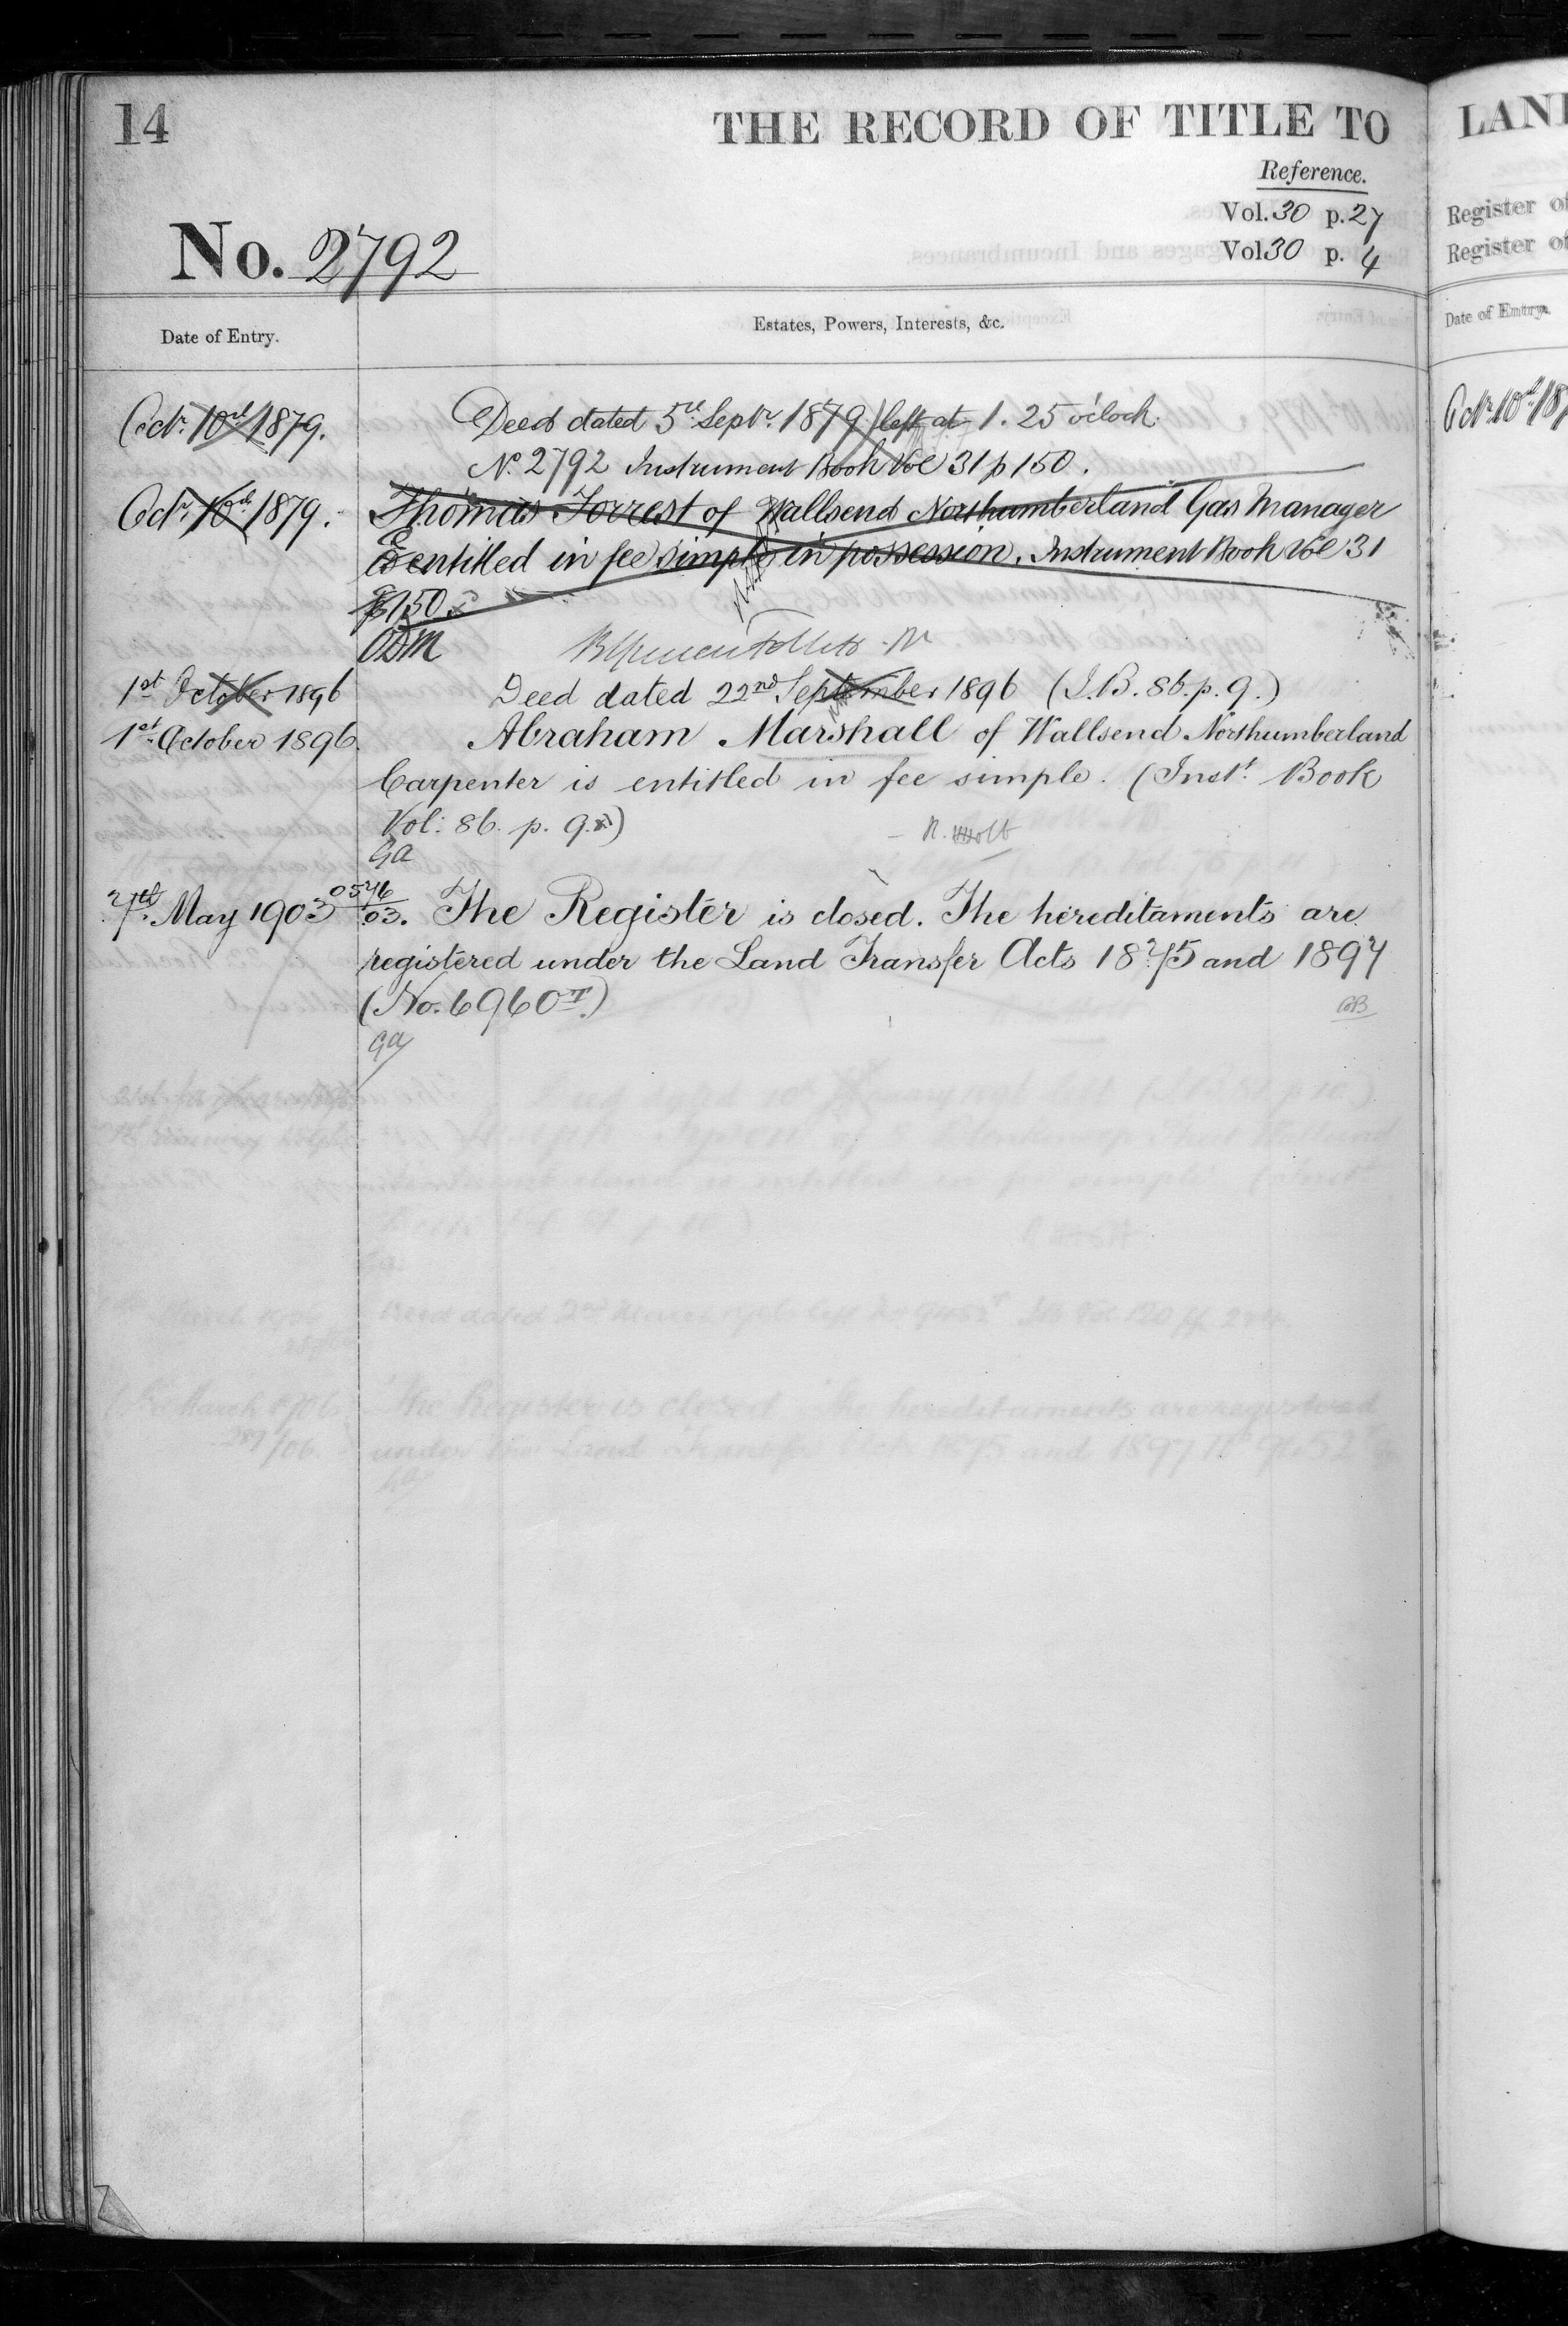 14
THE RECORD OF TITLE TO
Reference.
Vol. 30 p. 27
Vol 30 p. 4
No. 2792
Date of Entry.
Estates, Powers, Interests, &c.
Octr. 10th 1879. Deed dated 5th Septr. 1879 left at 1.25 o'clock.
No. 2792 Instrument Book Vol 31 p 150.
Octr. 10th 1879. Thomas Forrest of Wallsend Northumberland Gas Manager
is entitled in fee simple in possession. Instrument Book Vol 31
p 150.
ODM
1st October 1896 Deed dated 22nd September 1896 (I.B. 86. p. 9.)
1st October 1896. Abraham Marshall of Wallsend Northumberland
Carpenter is entitled in fee simple. (Instt. Book
Vol: 86. p. 9.)
R. Holt
GA
7th May 1903 0546/03. The Register is closed. The hereditaments are
registered under the Land Transfer Acts 1875 and 1897
(No. 6960T.)
GA
LAND
Register of
Register of
Date of Entry.
Octr. 10th 18